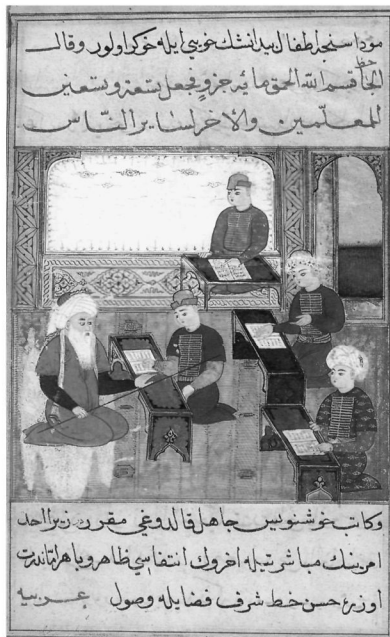 اطفال خوبى ايله خوكر اولور وقال
الجاحظ قسم الله الحمق مائة جزو فجعل تسعة وتسعين
للمعلمين والاخر لساير الناس
وكاتب خوشنويس جاهل قالدوغى مقرردر زيرا احد
امرينك مباشرتيله اخروك انتفاسى ظاهر و باهر
اوزره حسن خط شرف فضايله وصول